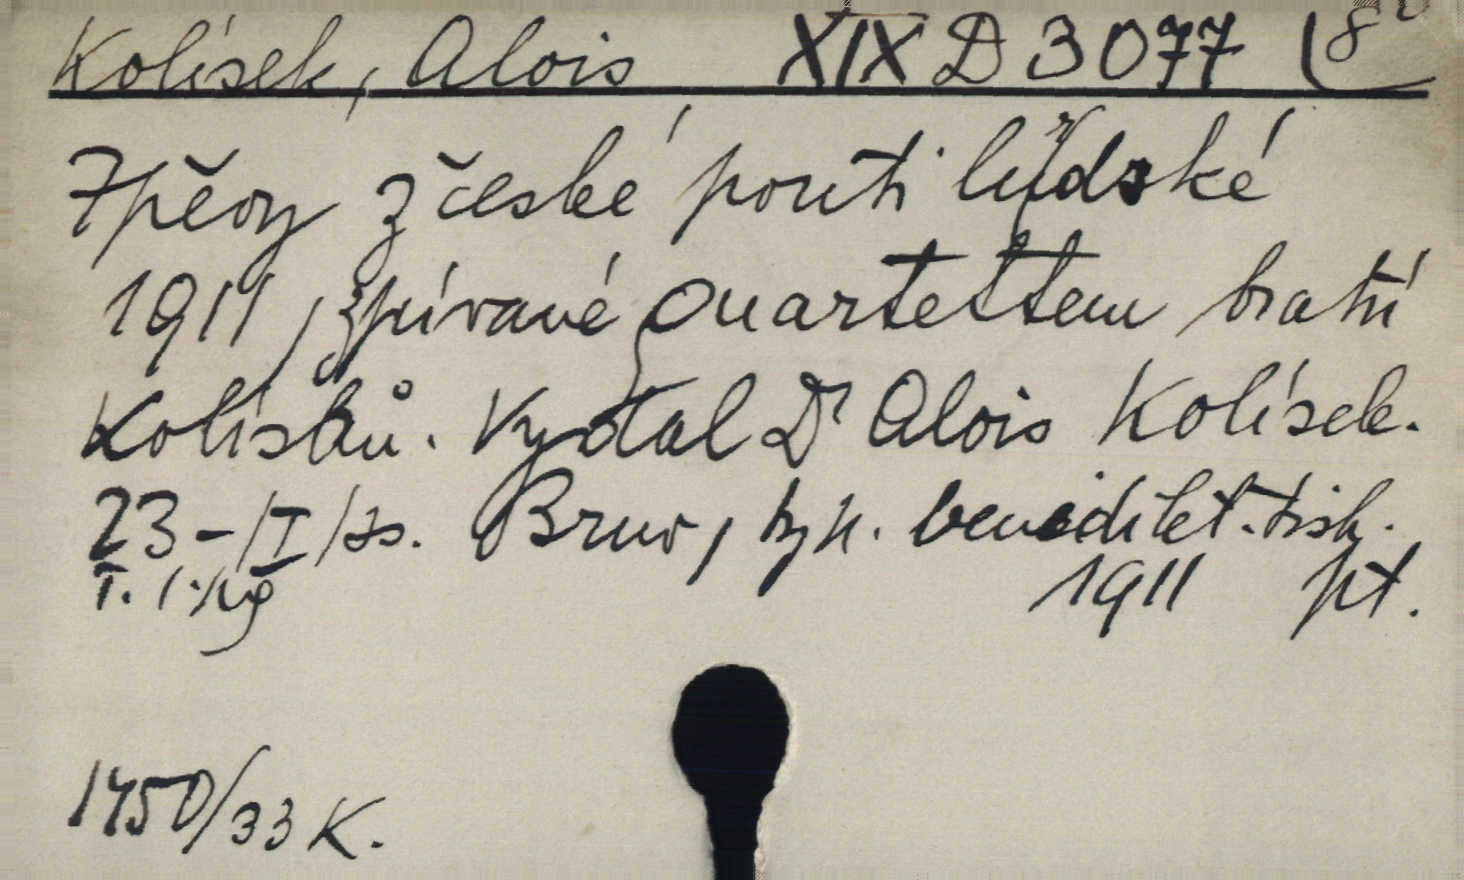 Kolísek, Alois XIX D 3077 8°
Zpěvy z české pouti lurdské
1911, zpívané Quartettem bratří
Kolísků. Vydal Dr Alois Kolísek.
23 - /I/ s. Brno, typ. benediktet. tisk.
1911 pt.
1450/33 K.